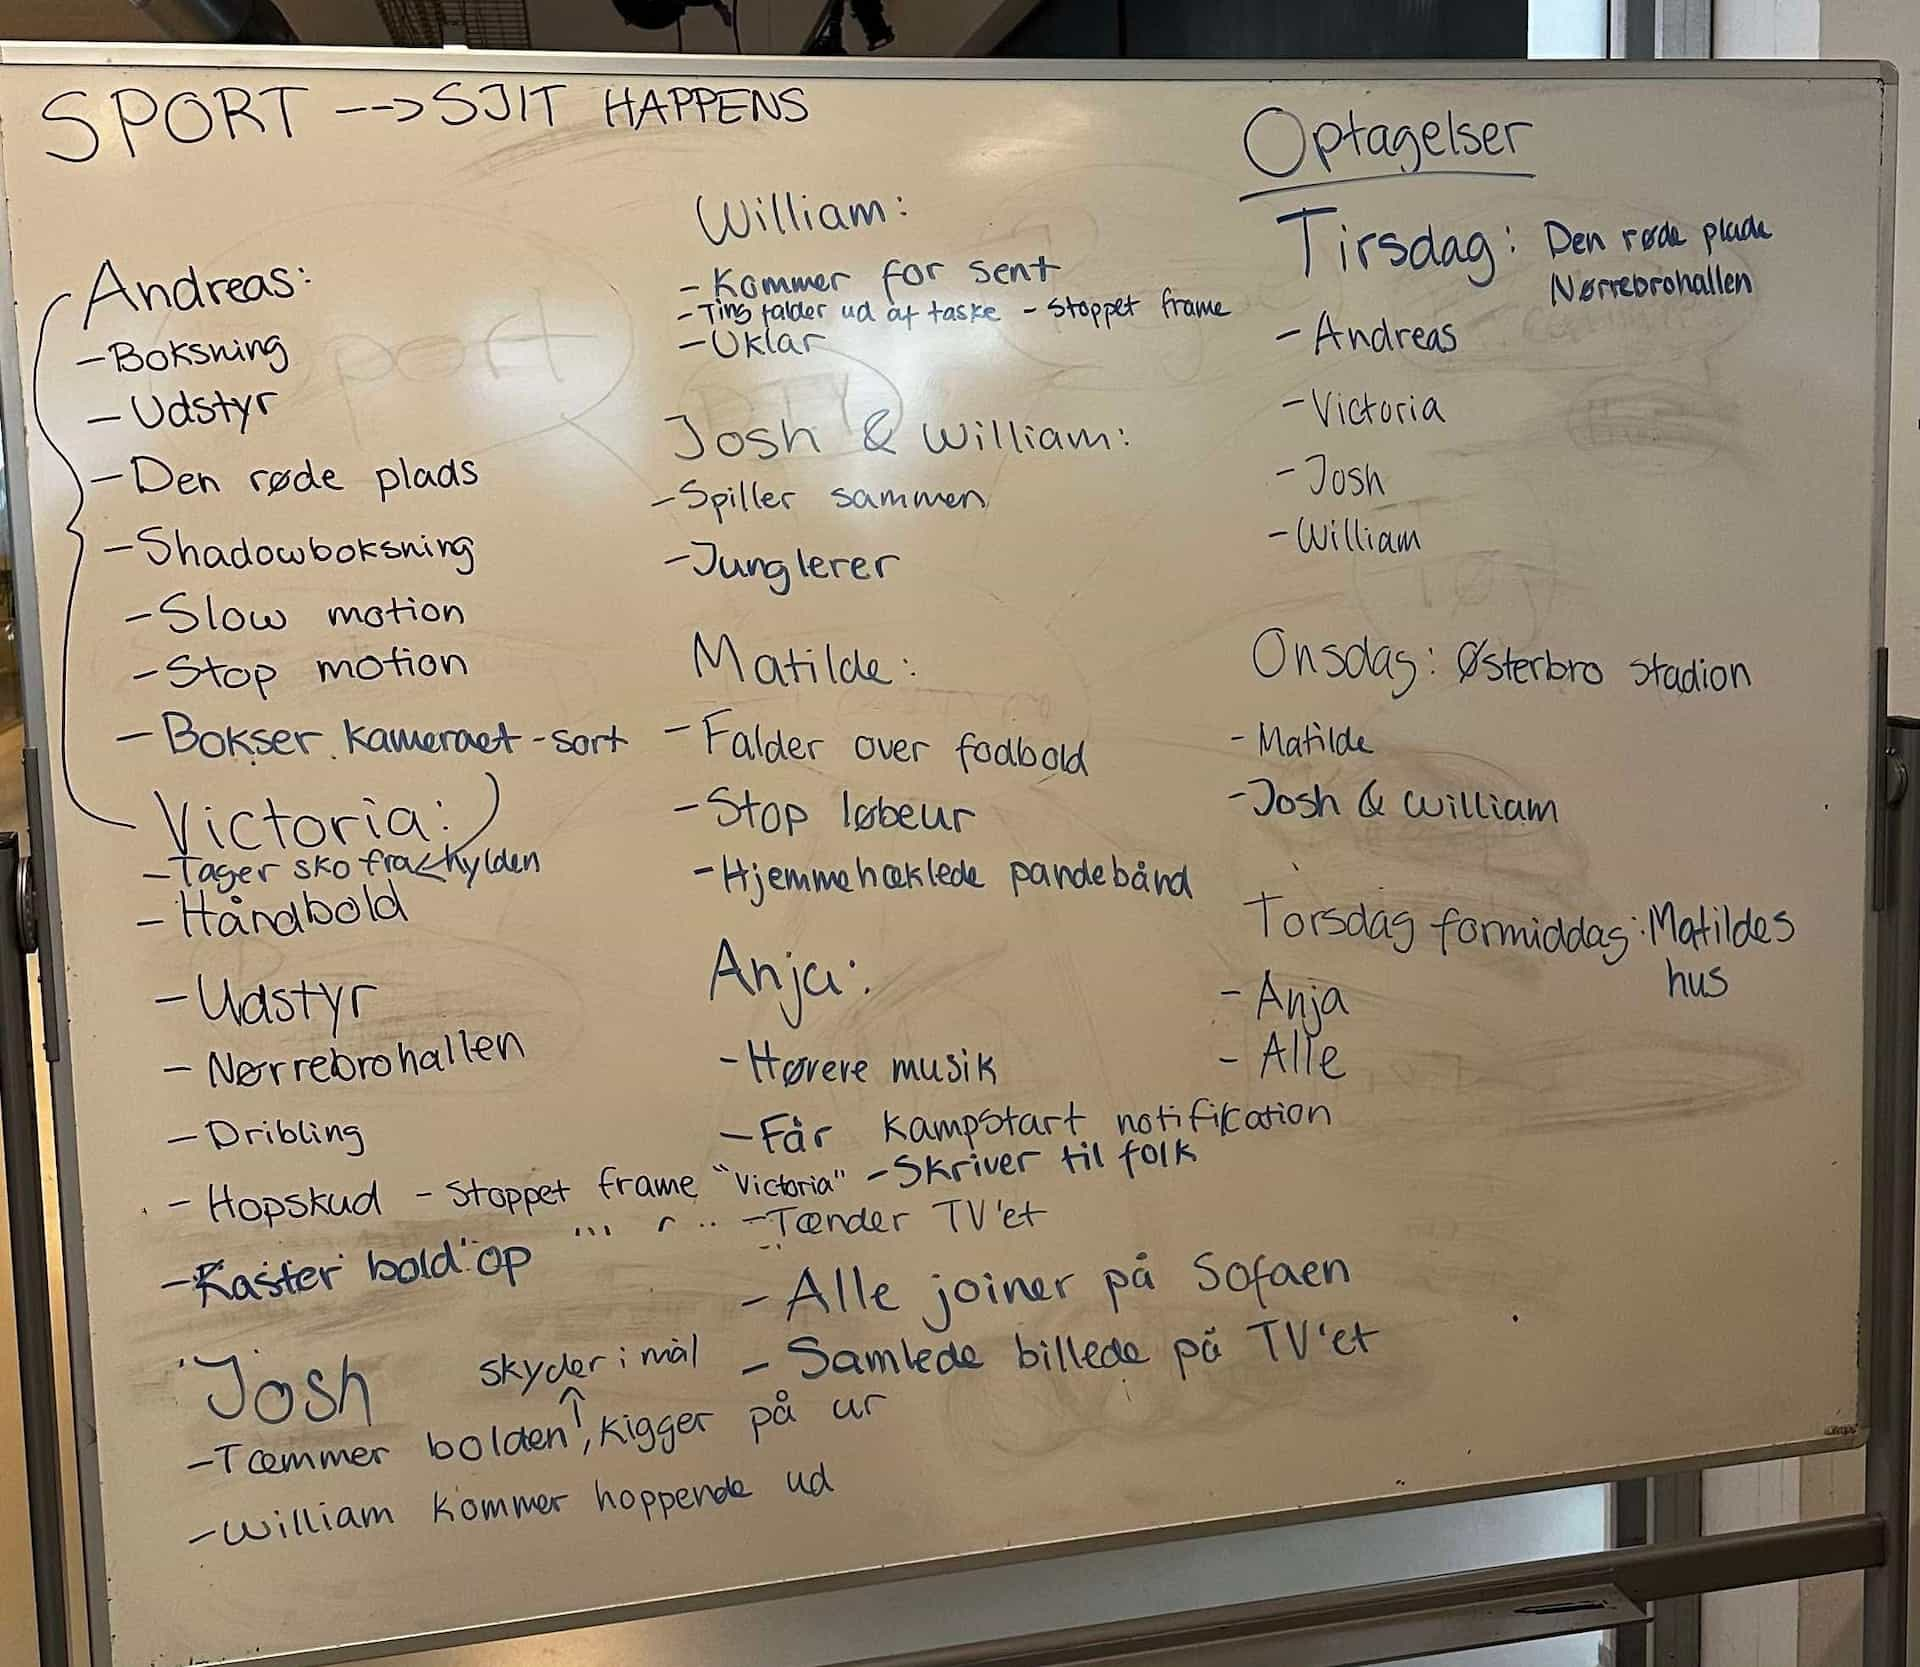 SPORT --> SJIT HAPPENS
Andreas:
- Boksning
- Udstyr
- Den røde plads
- Shadowboksning
- Slow motion
- Stop motion
- Bokser kameraet - sort
Victoria:
- Tager sko fra hylden
- Håndbold
- Udstyr
- Nørrebrohallen
- Dribling
- Hopskud - stoppet frame "Victoria"
- Kaster bold op
Josh
skyder i mål
↑
- Tæmmer bolden, kigger på ur
- William kommer hoppende ud
William:
- Kommer for sent
- Ting falder ud af taske - stoppet frame
- Uklar
Josh & William:
- Spiller sammen
- Junglerer
Matilde:
- Falder over fodbold
- Stop løbeur
- Hjemmehæklede pandebånd
Anja:
- Hørere musik
- Får kampstart notification
- Skriver til folk
- Tænder TV'et
- Alle joiner på sofaen
- Samlede billede på TV'et
Optagelser
Tirsdag: Den røde plade
Nørrebrohallen
- Andreas
- Victoria
- Josh
- William
Onsdag: Østerbro stadion
- Matilde
- Josh & William
Torsdag formiddag: Matildes
hus
- Anja
- Alle